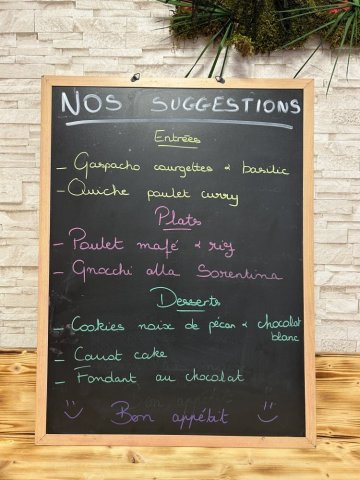 NOS SUGGESTIONS
Entrées
- Gaspacho courgettes & basilic
- Quiche poulet curry
Plats
- Poulet mafé & riz
- Gnocchi alla Sorentina
Desserts
- Cookies noix de pécan & chocolat
blanc
- Carrot cake
- Fondant au chocolat
Bon appétit